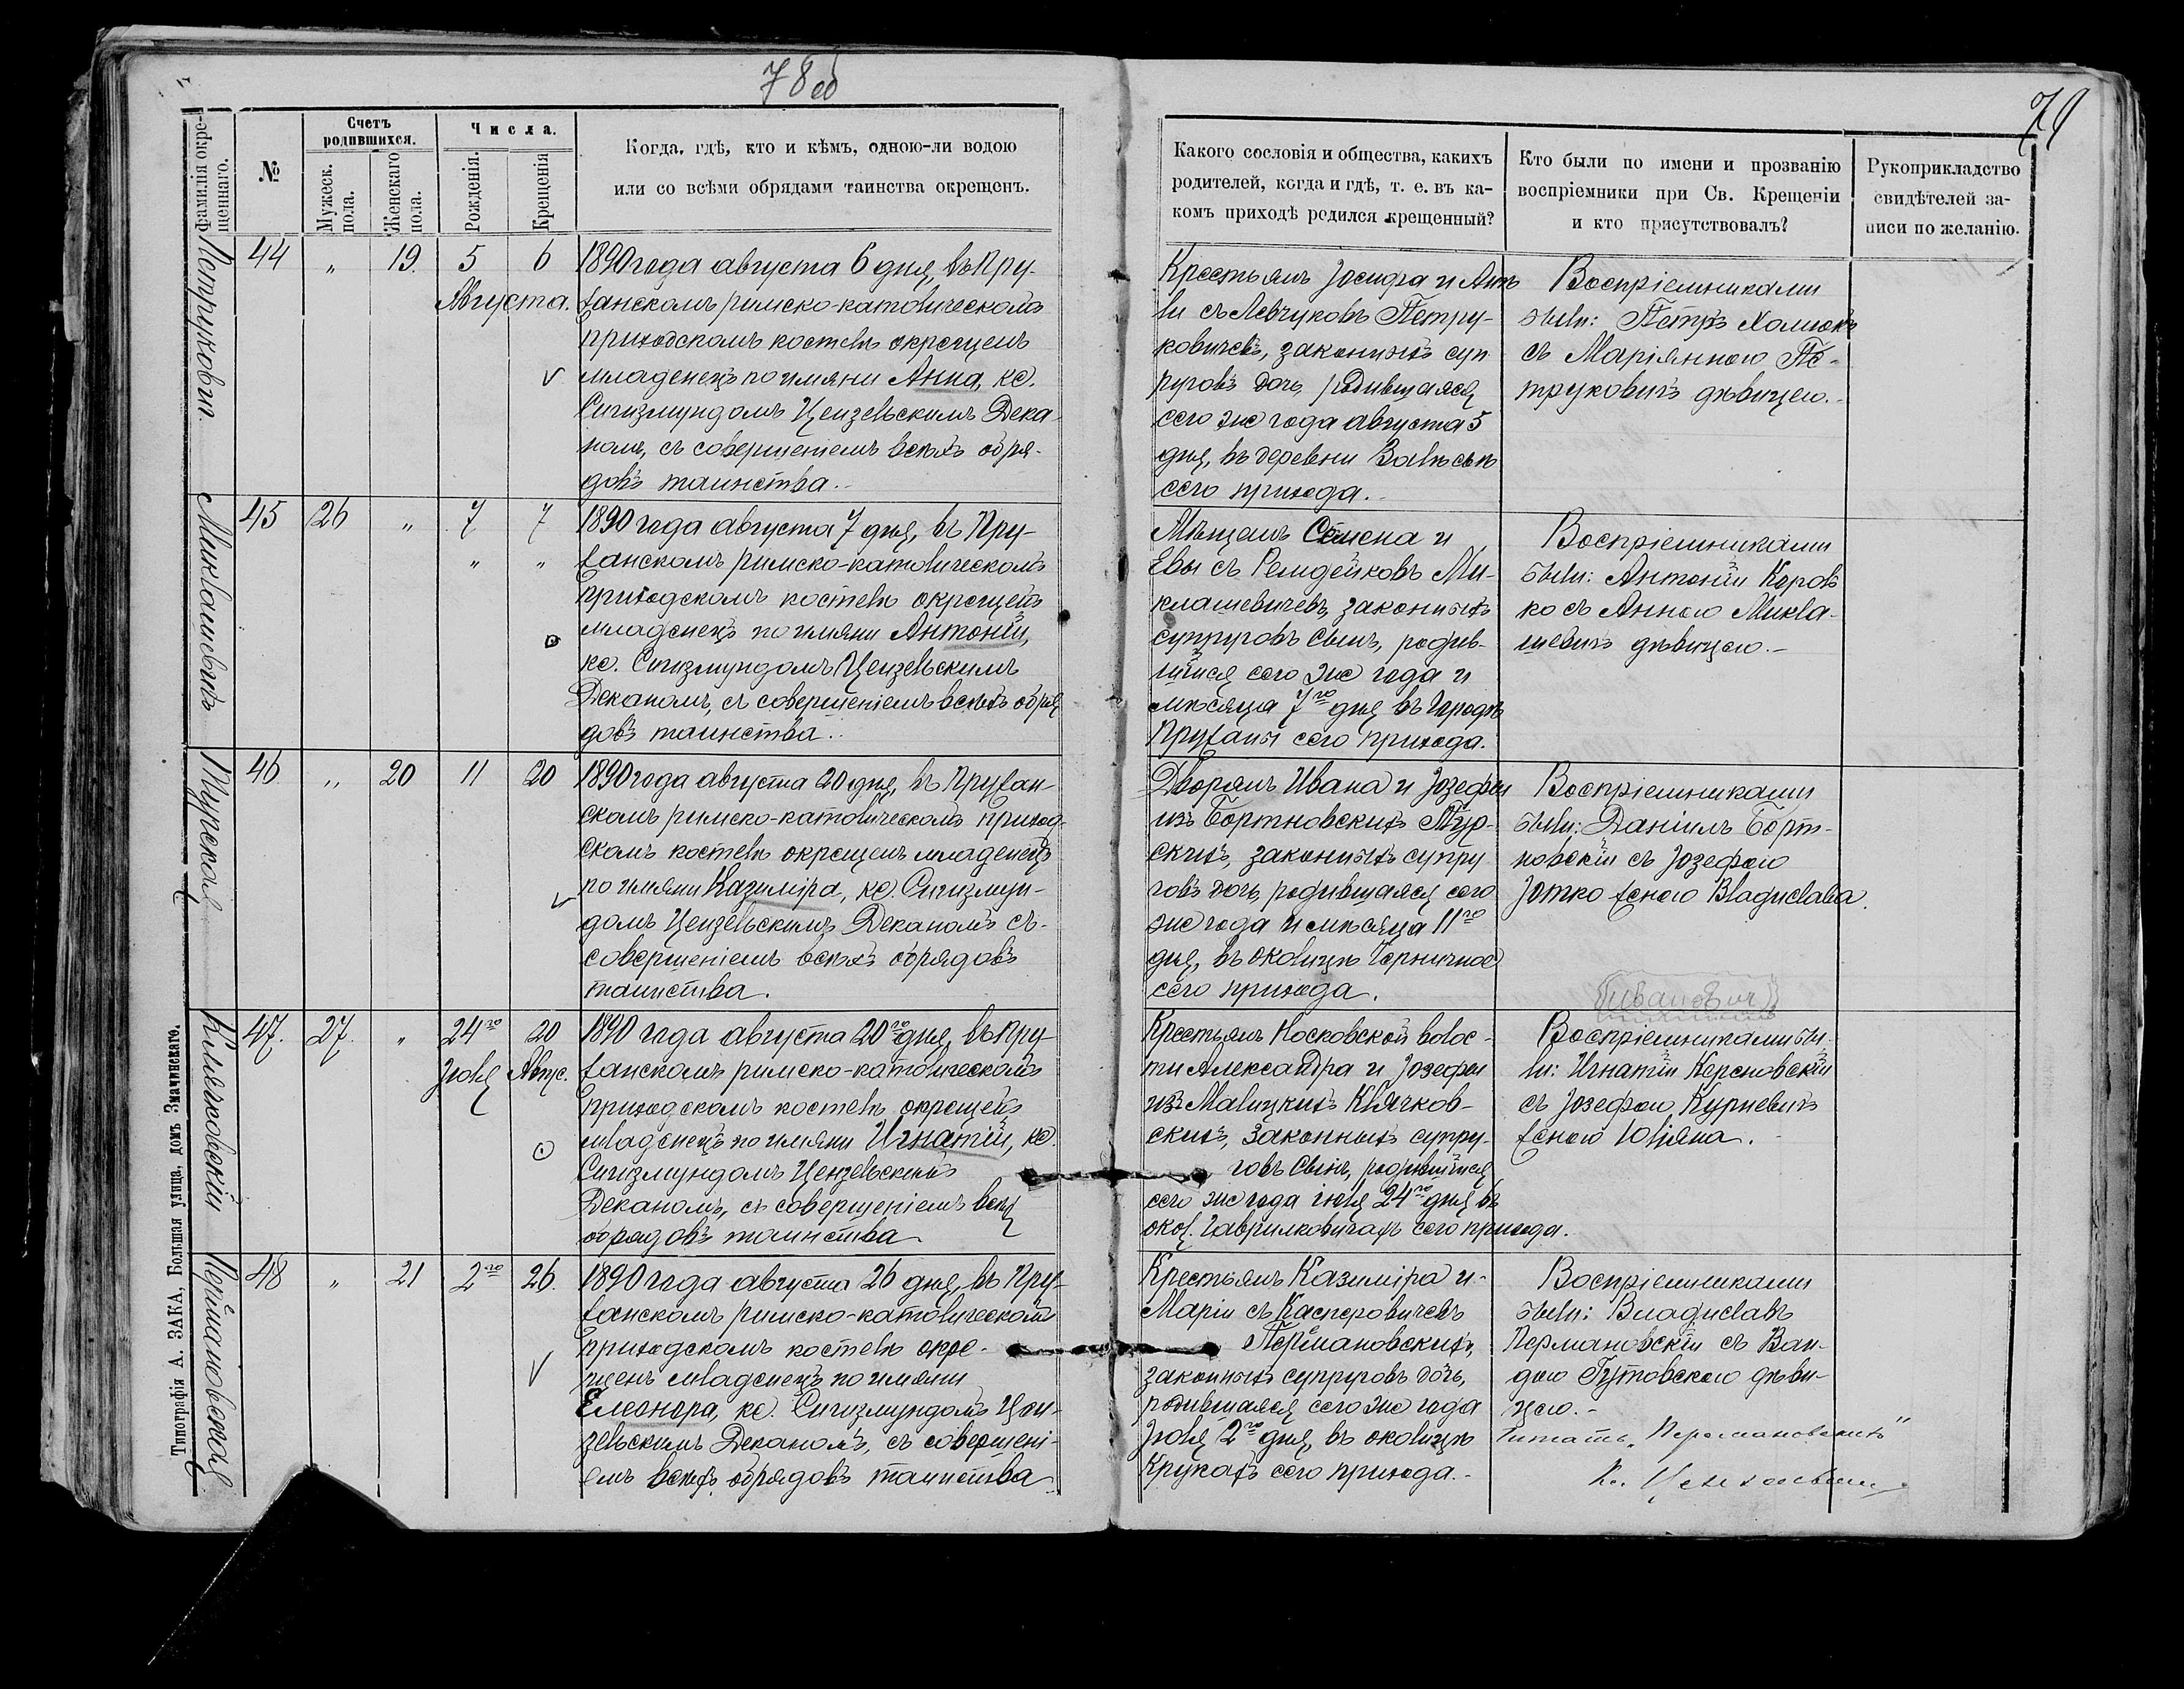 78 об
79
Фамилія окре-
щеннаго.
№
Счетъ
родившихся.
Мужеск.
пола.
Женскаго
пола.
Числа.
Рожденія.
Крещенія
Когда, гдѣ, кто и кѣмъ, одною-ли водою
или со всѣми обрядами таинства окрещенъ.
Какого сословія и общества, какихъ
родителей, когда и гдѣ, т. е. въ ка-
комъ приходѣ родился крещенный?
Кто были по имени и прозванію
воспріемники при Св. Крещеніи
и кто присутствовалъ?
Рукоприкладство
свидѣтелей за-
писи по желанію.
Петруковичъ.
44 " 19. 5 6
Августа.
1890 года августа 6 дня, въ Пру-
жанскомъ римско-католическомъ
приходскомъ костелѣ окрещенъ
младенецъ по имяни Анна, кс.
Сигизмундомъ Цензевскимъ Дека-
номъ, съ совершеніемъ всѣхъ обря-
довъ таинства.-
Крестьянъ Іосифа и Ан-
ны съ Левчуковъ Петру-
ковичевъ, законныхъ суп-
руговъ дочь, родившаяся
сего же года августа 5
дня, въ деревни
сего прихода.-
Воспріемниками
были: Петръ Холмокъ
съ Маріянною Пе-
труковичъ дѣвицею.-
Миклашевичъ
45 26 " 7 7
" "
1890 года августа 7 дня, въ Пру-
жанскомъ римско-католическомъ
приходскомъ костелѣ окрещенъ
младенецъ по имяни Антоній,
кс. Сигизмундомъ Цензевскимъ
Деканомъ, съ совершеніемъ всѣхъ обря-
довъ таинства.-
Мѣщанъ Семена и
Евы съ Ремдейковъ Ми-
клашевичевъ, законныхъ
супруговъ сынъ, родив-
шійся сего же года и
мѣсяца 7го дня въ городѣ
Пружаны сего прихода.
Воспріемниками
были: Антоній Коров-
ко съ Анною Микла-
шевичъ дѣвицею.-
Турская
46 " 20 11 20
1890 года августа 20 дня, въ Пружан-
скомъ римско-католическомъ приход-
скомъ костелѣ окрещенъ младенецъ
по имяни Казиміра, кс. Сигизмун-
домъ Цензевскимъ Деканомъ съ-
совершеніемъ всѣхъ обрядовъ
таинства.
Дворянъ Ивана и Іозефы
изъ Бортновскихъ Тур-
скихъ, законныхъ супру-
говъ дочь, родившаяся сего
же года и мѣсяца 11го
дня, въ околицѣ Чорничное
сего прихода.
Воспріемниками
были: Даніилъ Борт-
новскій съ Іозефою
Іотко женою Владислава.
Клячковскій
47. 27. " 24го 20
Іюля Авгус.
1890 года августа 20го дня, въ Пру-
жанскомъ римско-католическомъ
приходскомъ костелѣ окрещенъ
младенецъ по имяни Игнатій, кс.
Сигизмундомъ Цензевскимъ
Деканомъ, съ совершеніемъ всѣхъ
обрядовъ таинства
Крестьянъ Носковской волос-
ти Александра и Іозефы
изъ Малицкихъ Клячков-
скихъ, законныхъ супру-
говъ сынъ, родившійся
сего же года іюля 24го дня въ
окол. Гаврилковичахъ сего прихода.
Ивановичъ
Воспріемниками бы-
ли: Игнатій Керсновскій
съ Іозефою Курневичъ
женою Юліяна.
Перймановская
48 " 21 2го 26.
1890 года августа 26 дня, въ Пру-
жанскомъ римско-католическомъ
приходскомъ костелѣ окре-
щенъ младенецъ по имяни
Елеонора, кс. Сигизмундомъ Цен-
зевскимъ Деканомъ, съ совершені-
емъ всѣхъ обрядовъ таинства
Крестьянъ Казиміра и-
Маріи съ Касперовичевъ
Перймановскихъ,
законныхъ супруговъ дочь,
родившаяся сего же года
Іюля 2го дня, въ околицѣ
Крукахъ сего прихода.-
Воспріемниками
были: Владиславъ
Пермановскій съ Ван-
дою Гутовскою дѣви-
цею.-
Читать „Перомановскихъ"
Кс. Цензевскій
Типографія А. ЗАКА, Большая улица, домъ Змачинскаго.